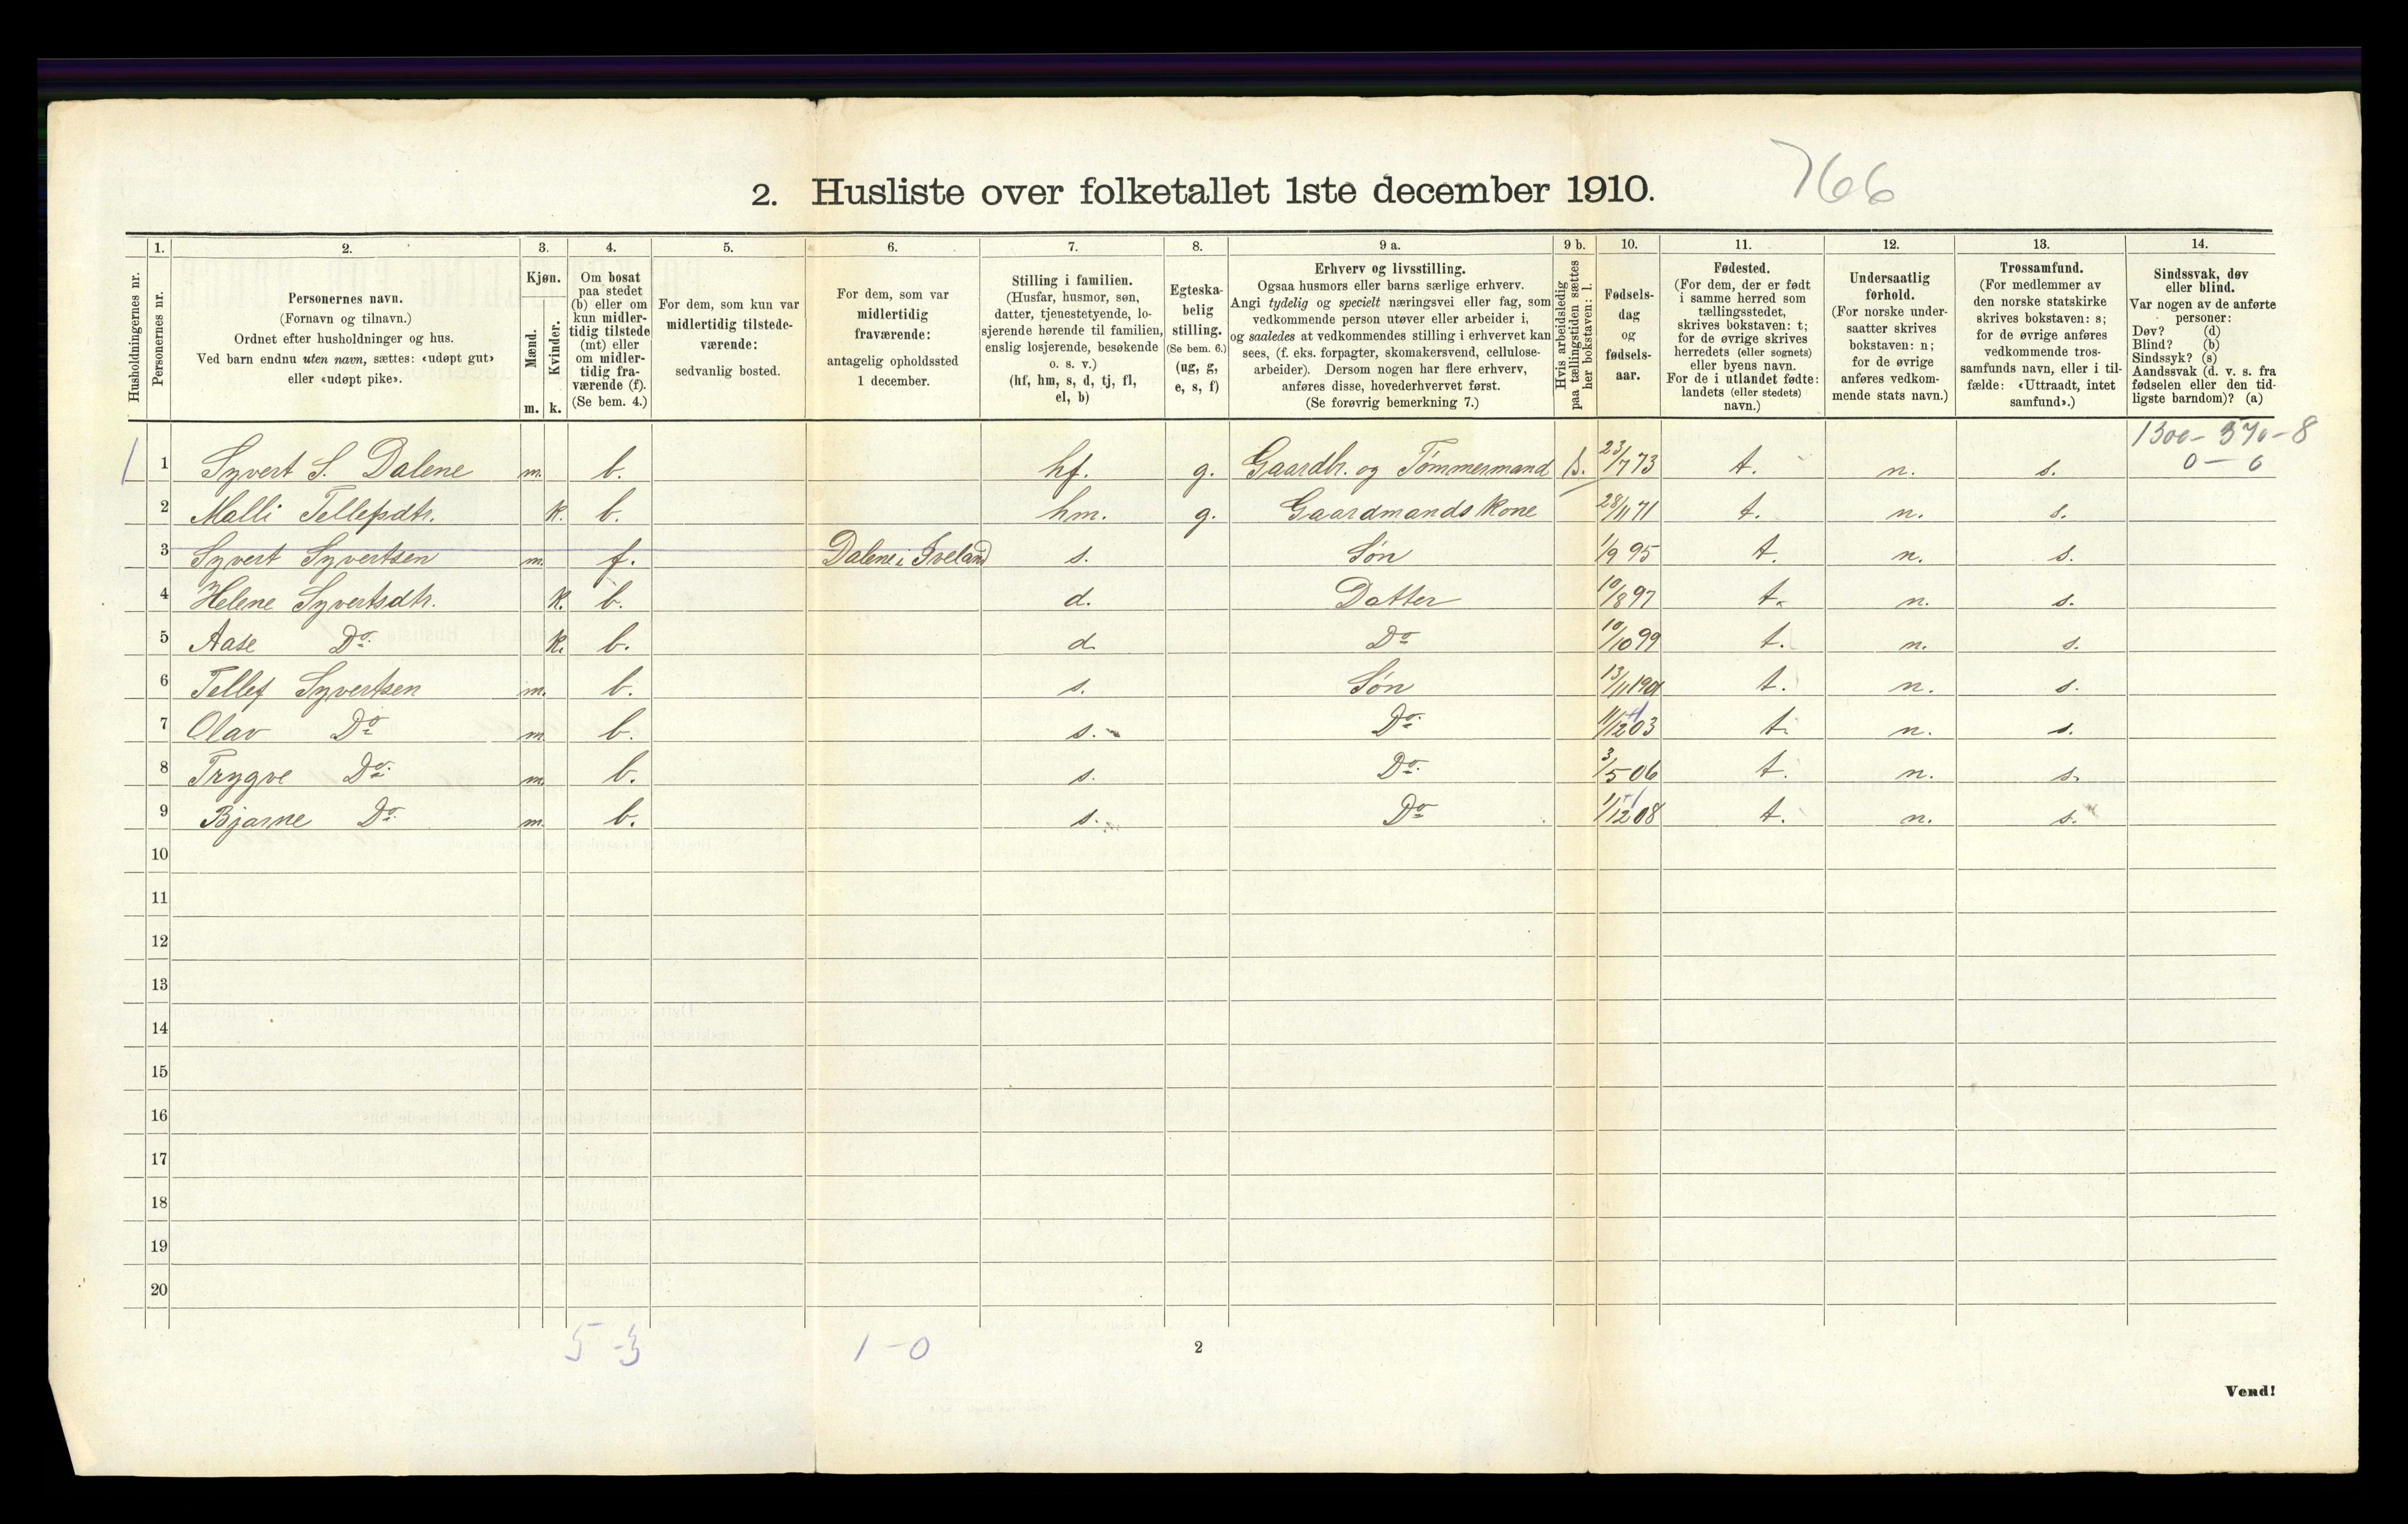 766
2. Husliste over folketallet 1ste december 1910.
1. 2. 3. 4. 5. 6. 7. 8. 9 a. 9 b. 10. 11. 12. 13. 14.
Husholdningernes nr.
Personernes nr.
Personernes navn.
(Fornavn og tilnavn.)
Ordnet efter husholdninger og hus.
Ved barn endnu uten navn, sættes: «udøpt gut»
eller «udøpt pike».
Kjøn.
Mænd.
Kvinder.
m. k.
Om bosat
paa stedet
(b) eller om
kun midler-
tidig tilstede
(mt) eller
om midler-
tidig fra-
værende (f).
(Se bem. 4.)
For dem, som kun var
midlertidig tilstede-
værende:
sedvanlig bosted.
For dem, som var
midlertidig
fraværende:
antagelig opholdssted
1 december.
Stilling i familien.
(Husfar, husmor, søn,
datter, tjenestetyende, lo-
sjerende hørende til familien,
enslig losjerende, besøkende
o. s. v.)
(hf, hm, s, d, tj, fl,
el, b)
Egteska-
belig
stilling.
(Se bem. 6.)
(ug, g,
e, s, f)
Erhverv og livsstilling.
Ogsaa husmors eller barns særlige erhverv.
Angi tydelig og specielt næringsvei eller fag, som
vedkommende person utøver eller arbeider i,
og saaledes at vedkommendes stilling i erhvervet kan
sees, (f. eks. forpagter, skomakersvend, cellulose-
arbeider). Dersom nogen har flere erhverv,
anføres disse, hovederhvervet først.
(Se forøvrig bemerkning 7.)
Hvis arbeidsledig
paa tællingstiden sættes
her bokstaven: l.
Fødsels-
dag
og
fødsels-
aar.
Fødested.
(For dem, der er født
i samme herred som
tællingsstedet,
skrives bokstaven: t;
for de øvrige skrives
herredets (eller sognets)
eller byens navn.
For de i utlandet fødte:
landets (eller stedets)
navn.)
Undersaatlig
forhold.
(For norske under-
saatter skrives
bokstaven: n;
for de øvrige
anføres vedkom-
mende stats navn.)
Trossamfund.
(For medlemmer av
den norske statskirke
skrives bokstaven: s;
for de øvrige anføres
vedkommende tros-
samfunds navn, eller i til-
fælde: «Uttraadt, intet
samfund».)
Sindssvak, døv
eller blind.
Var nogen av de anførte
personer:
Døv? (d)
Blind? (b)
Sindssyk? (s)
Aandssvak (d. v. s. fra
fødselen eller den tid-
ligste barndom)? (a)
1300 - 370 - 8
0 - 0
1 1 Syvert S. Dalene m. b. hf. g. Gaardbr. og Tømmermand 23/7 73 t. n. s.
2 Malli Tellefsdtr. k. b. hm. g. Gaardmands kone 28/11 71 t. n. s.
3 Syvert Syvertsen m. f. Dalene i Iveland s. Søn 1/9 95 t. n. s.
4 Helene Syvertsdtr. k. b. d. Datter 10/8 97 t. n. s.
5 Aase Do. k. b. d. Do 10/10 99 t. n. s.
6 Tellef Syvertsen m. b. s. Søn 13/11 1901 t. n. s.
7 Olav Do m. b. s. Do. 11/12 03 t. n. s.
8 Trygve Do. m. b. s. Do. 3/5 06 t. n. s.
9 Bjarne Do. m. b. s. Do 1/12 08 t. n. s.
10
11
12
13
14
15
16
17
18
19
20
5 - 3 1 - 0
2
Vend!